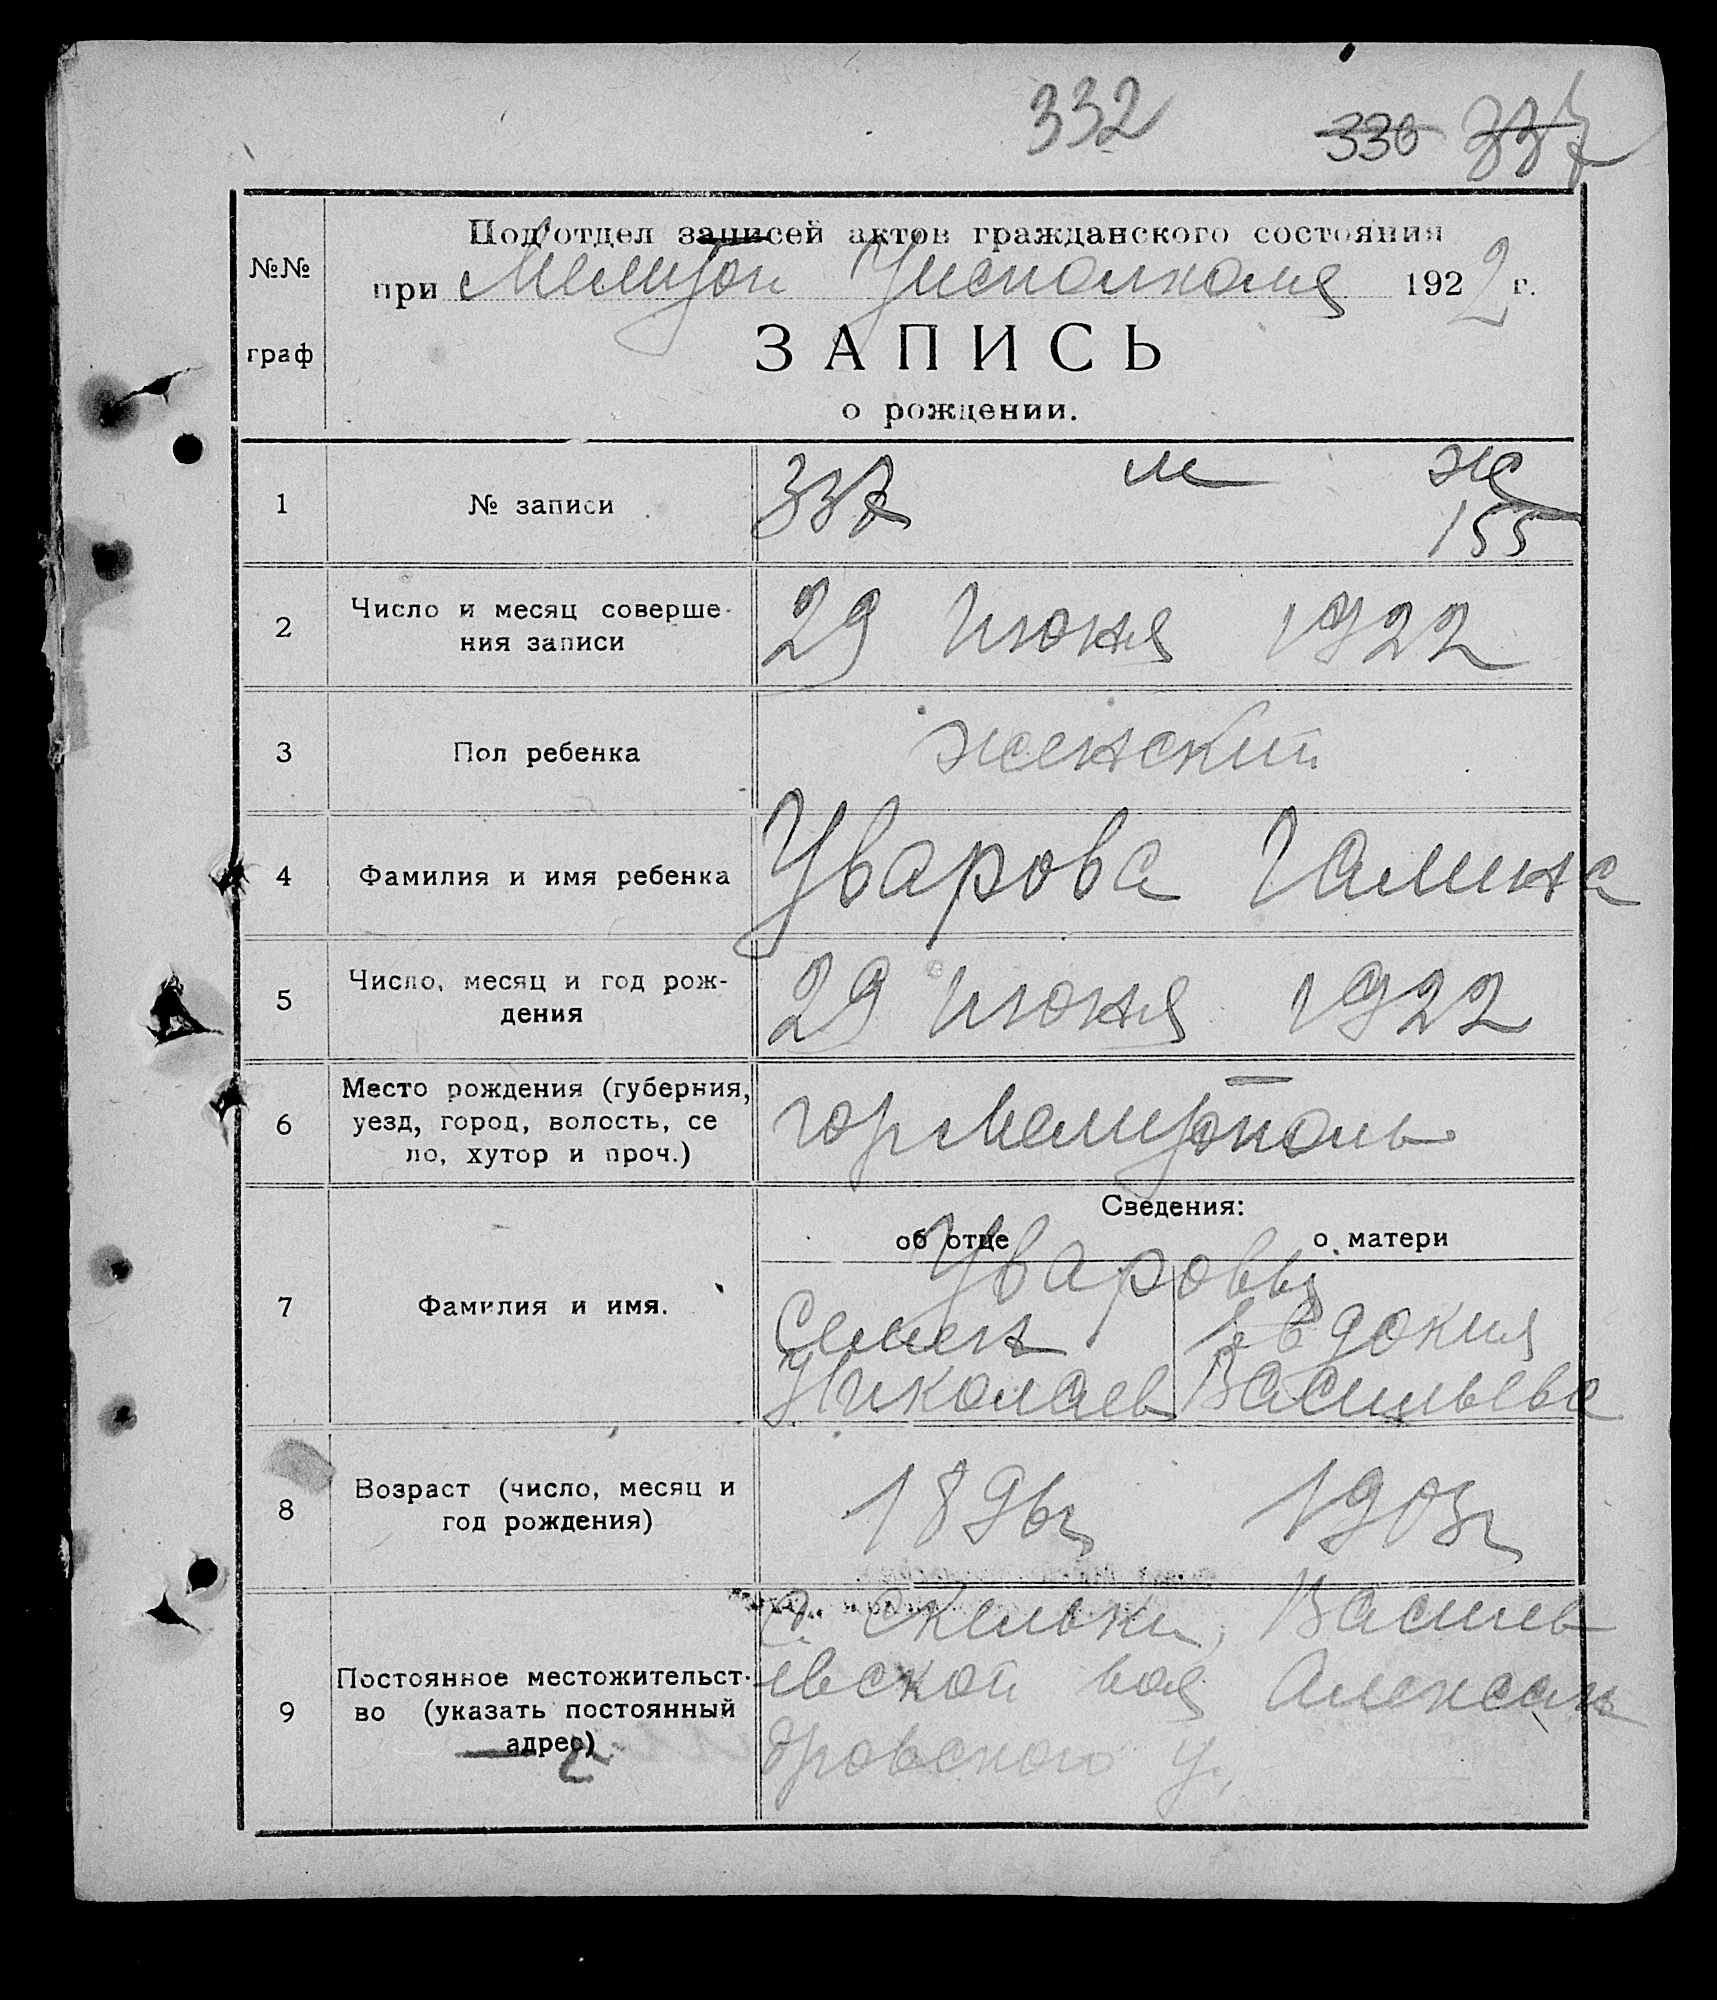 332 330 337
Подотдел записей актов гражданского состояния
№№
при Мелитоп Уисполкома 1922 г.
граф
ЗАПИСЬ
о рождении.
м ж
1 № записи 337 155
2 Число и месяц соверше-
ния записи 29 Июня 1922
3 Пол ребенка женский
4 Фамилия и имя ребенка Уварова Галина
5 Число, месяц и год рож-
дения 29 Июня 1922
Место рождения (губерния,
6 уезд, город, волость, се
ло, хутор и проч.) гор Мелитополь
Сведения:
об отце о матери
Уваровы
7 Фамилия и имя. Семен Евдокия
Николаев Васильева
8 Возраст (число, месяц и
год рождения) 1896г 1903г
с. Скельки, Василь
9 Постоянное местожительст-
во (указать постоянный
адрес) евской вол Александ
ровского у,